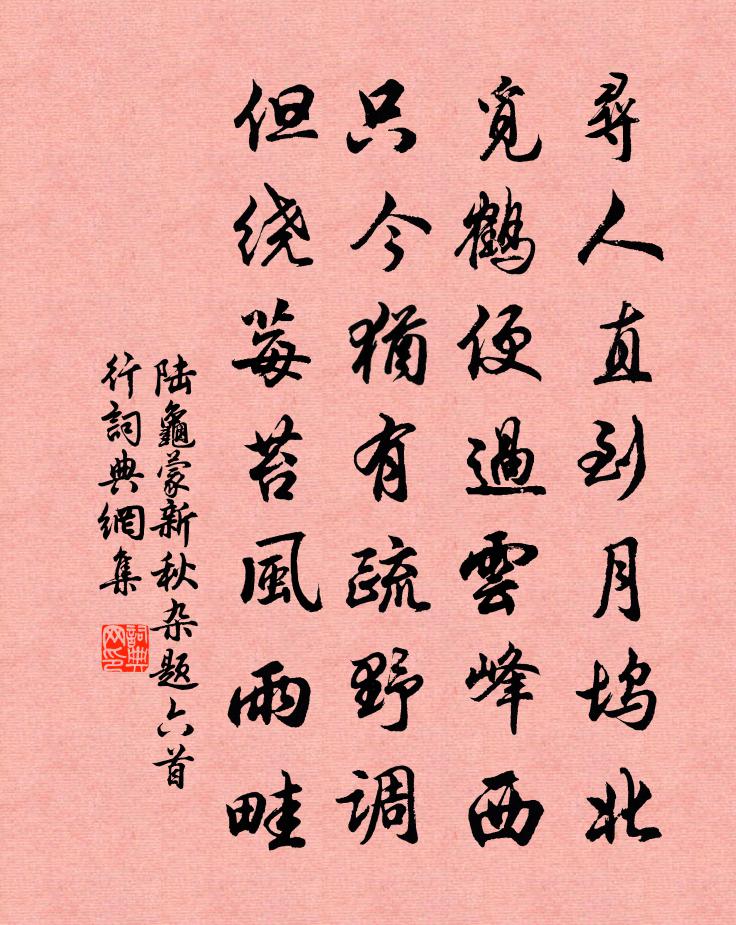 尋人直到月坞北
覓鶴便過雲峰西
只今猶有疏野调
但绕莓苔風雨畦
陆龜蒙新秋杂题六首
行詞典網集
詞典网印